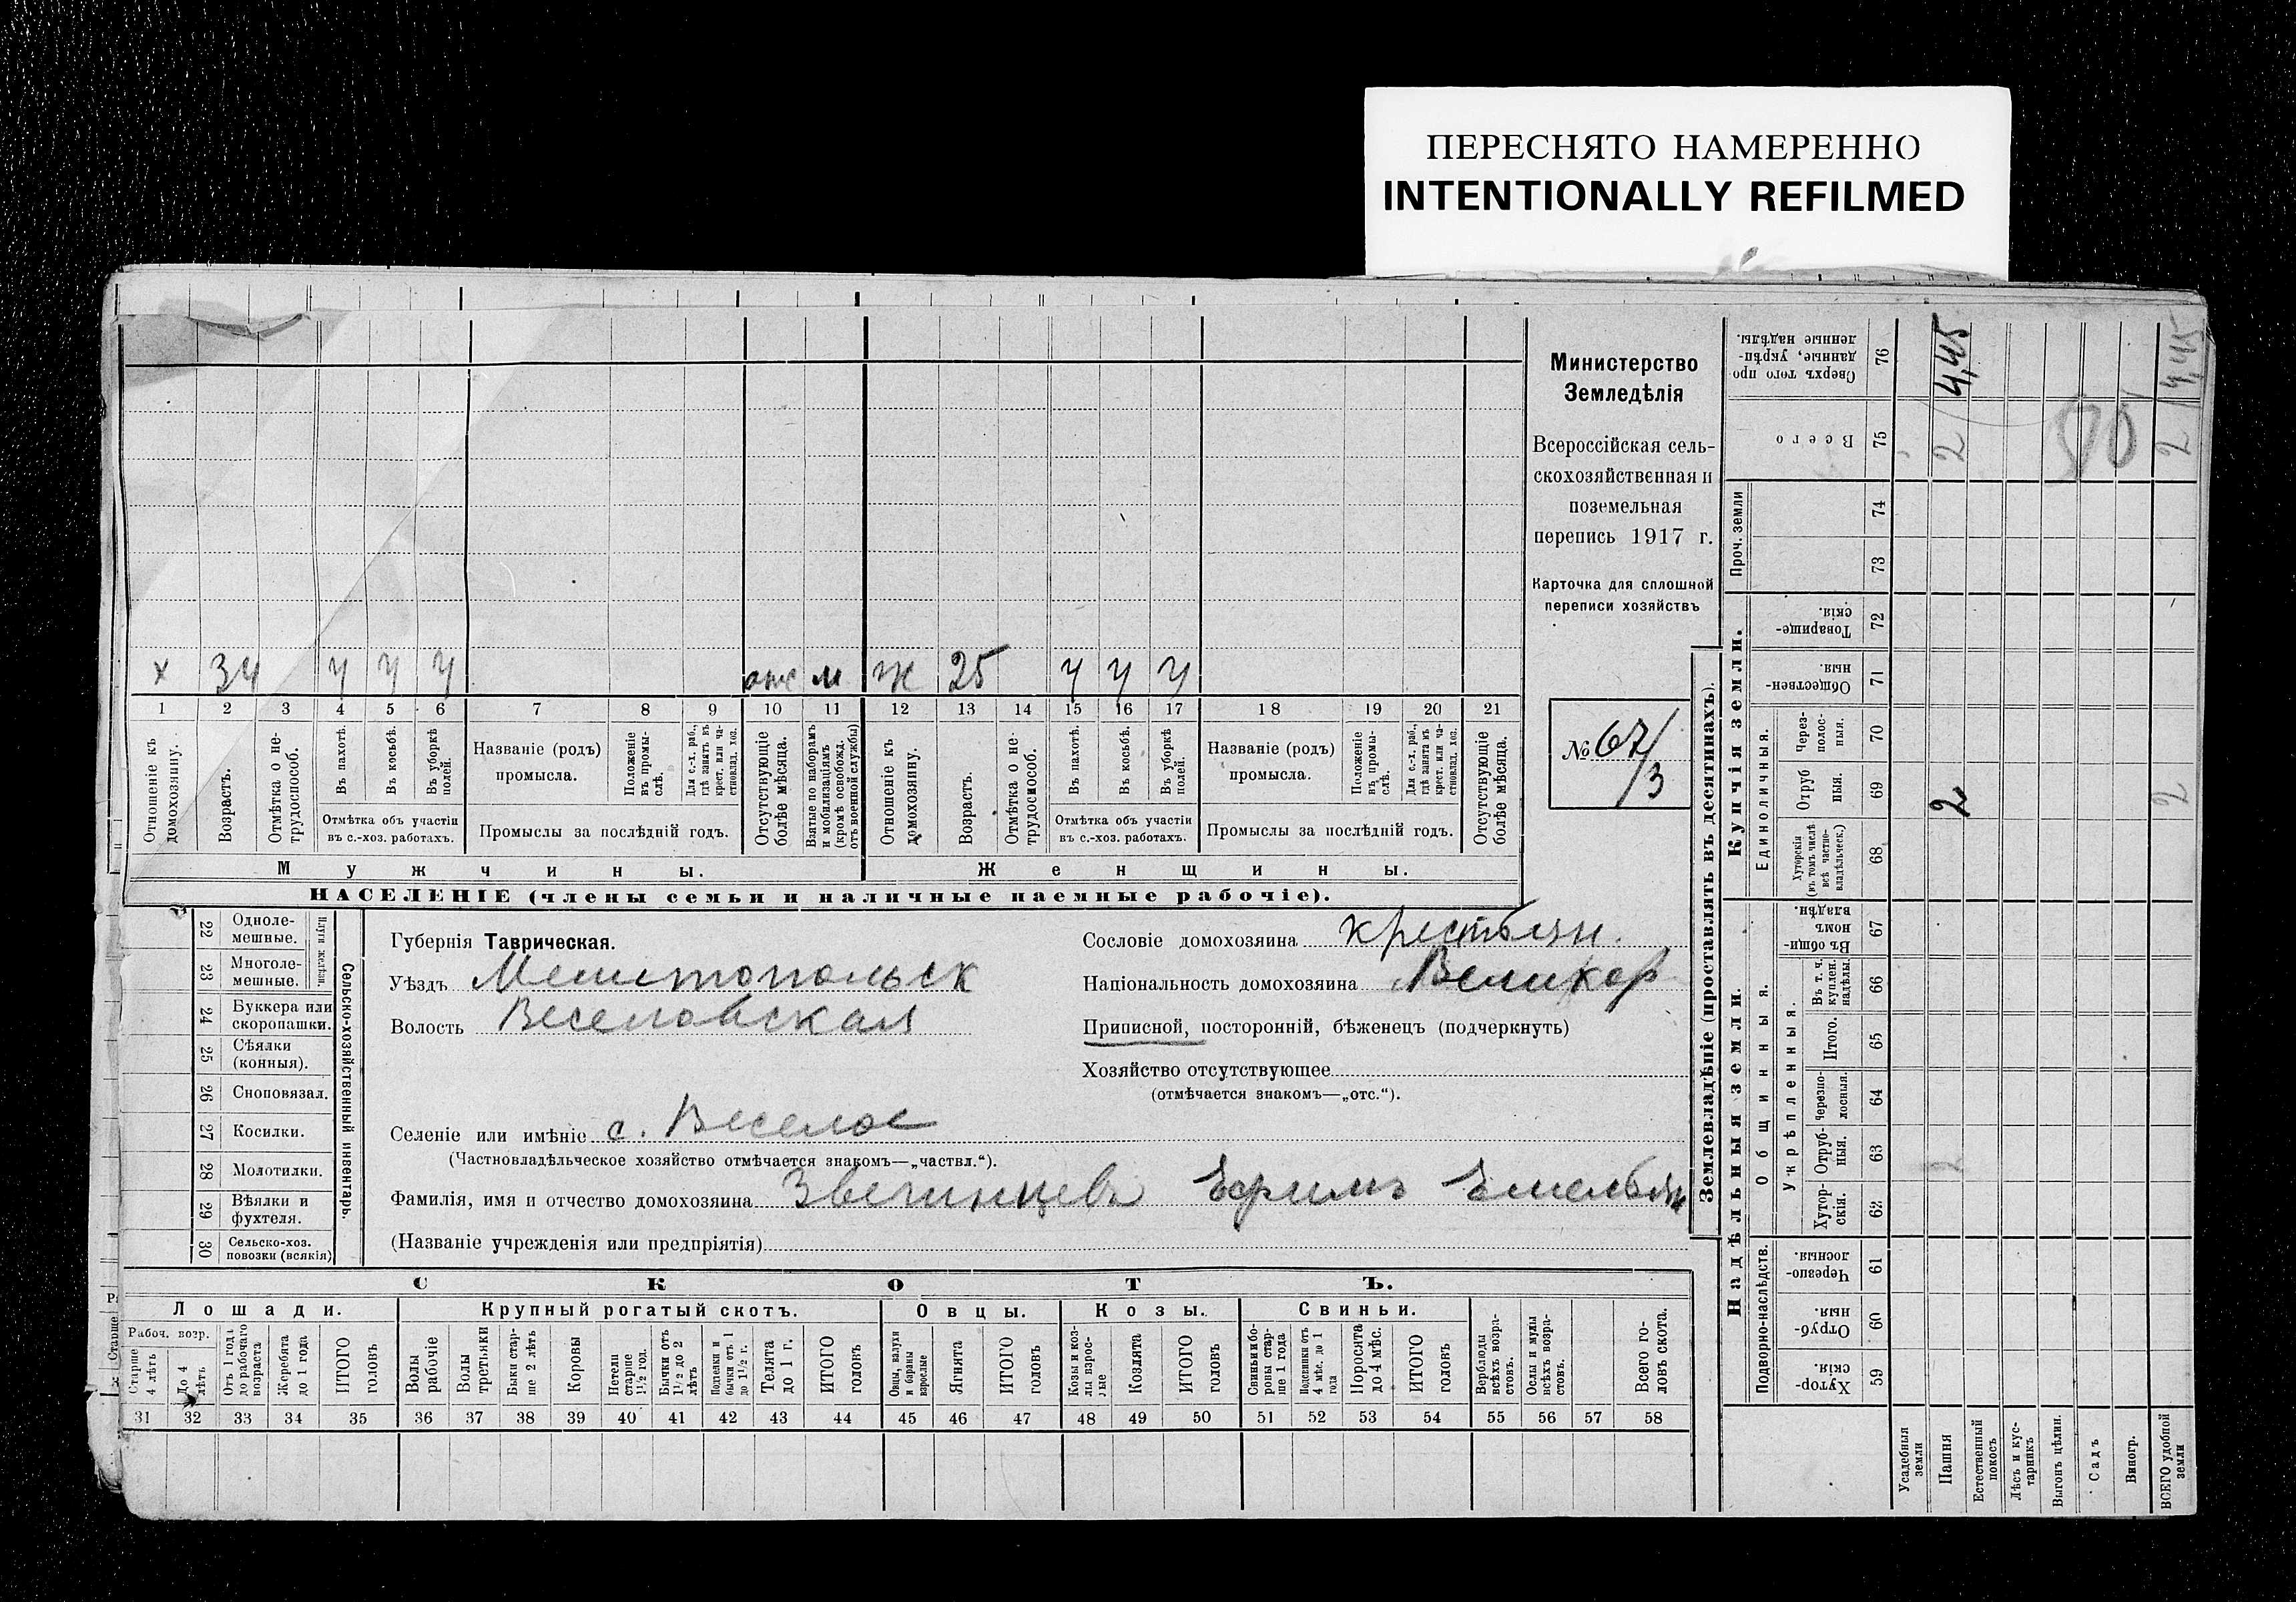 ПЕРЕСНЯТО НАМЕРЕННО
INTENTIONALLY REFILMED
Министерство
Земледѣлія
Всероссійская сель-
скохозяйственная и
поземельная
перепись 1917 г.
Карточка для сплошной
переписи хозяйствъ
№ 67/3
х 34 ч ч ч отс м ж 25 ч ч ч
1 2 3 4 5 6 7 8 9 10 11 12 13 14 15 16 17 18 19 20 21
Отношеніе къ домохозяину.
Возрастъ.
Отмѣтка о не-трудоспособ.
Въ пахотѣ.
Въ косьбѣ.
Въ уборкѣ полей.
Отмѣтка объ участіи
въ с.-хоз. работахъ.
Названіе (родъ)
промысла.
Положеніе въ промы-слѣ.
Для с.-х. раб., гдѣ занятъ въ крест. или ча-стновлад. хоз.
Промыслы за послѣдній годъ.
Отсутствующіе болѣе мѣсяца.
Взятые по наборамъ и мобилизаціямъ (кромѣ освобожд. отъ военной службы)
Отношеніе къ домохозяину.
Возрастъ.
Отмѣтка о не-трудоспособ.
Въ пахотѣ.
Въ косьбѣ.
Въ уборкѣ полей.
Отмѣтка объ участіи
въ с.-хоз. работахъ.
Названіе (родъ)
промысла.
Положеніе въ промы-слѣ.
Для с.-х. раб., гдѣ занята въ крест. или ча-стновлад. хоз.
Промыслы за послѣдній годъ.
Отсутствующіе болѣе мѣсяца.
Мужчины. Женщины.
НАСЕЛЕНІЕ (члены семьи и наличные наемные рабочіе).
22 Одноле-мешные.
23 Многоле-мешные.
Плуги желѣзн.
24 Буккера или скоропашки.
25 Сѣялки (конныя).
26 Сноповязал.
27 Косилки.
28 Молотилки.
29 Вѣялки и фухтеля.
30 Сельско-хоз. повозки (всякія)
Сельско-хозяйственный инвентарь.
Губернія Таврическая.
Уѣздъ Мелитопольск
Волость Веселовская
Сословіе домохозяина крестьян.
Національность домохозяина Великор
Приписной, посторонній, бѣженецъ (подчеркнуть)
Хозяйство отсутствующее
(отмѣчается знакомъ—„отс.“).
Селеніе или имѣніе с. Веселое
(Частновладѣльческое хозяйство отмѣчается знакомъ—„частвл.“).
Фамилія, имя и отчество домохозяина Звегинцевъ Ефимъ Емельян
(Названіе учрежденія или предпріятія)
СКОТЪ.
Лошади. Крупный рогатый скотъ. Овцы. Козы. Свиньи.
Рабоч. возр.
Старше 4 лѣтъ
До 4 лѣтъ
Отъ 1 года до рабочаго возраста
Жеребята до 1 года
ИТОГО головъ
Волы рабочіе
Волы третьяки
Быки стар-ше 2 лѣтъ
Коровы
Нетели старше 1½ год.
Бычки отъ 1½ до 2 лѣтъ
Подтелки и бычки отъ 1 до 1½ г.
Телята до 1 г.
ИТОГО головъ
Овцы, валухи и бараны взрослые
Ягнята
ИТОГО головъ
Козы и коз-лы взрос-лые
Козлята
ИТОГО головъ
Свиньи и бо-ровы стар-ше 1 года
Подсвинки отъ 4 мѣс. до 1 года
Поросята до 4 мѣс.
ИТОГО головъ
Верблюды всѣхъ возра-стовъ.
Ослы и мулы всѣхъ возра-стовъ.
Всего го-ловъ скота.
31 32 33 34 35 36 37 38 39 40 41 42 43 44 45 46 47 48 49 50 51 52 53 54 55 56 57 58
Землевладѣніе (проставлять въ десятинахъ).
Купчія земли.
Надѣльныя земли.
Сверхъ того про-данные, укрѣп-ленные надѣлы. 76 4,45 2 4,45
Всего 75 2
Проч. земли 74
73
Товарище-скія. 72
Обществен-ныя. 71
Единоличныя.
Через-полос-ныя. 70
Отруб ныя. 69 2 2
Хуторскія (въ томъ числѣ всѣ частно-владѣльческ.) 68
Въ общи-номъ владѣн. 67
Общинныя.
Укрѣпленныя.
Въ т. ч. куплен. надѣлы. 66
Итого. 65
Черезпо-лосныя. 64
Отруб-ныя. 63
Хутор-скія. 62
Подворно-наслѣдств.
Черезпо-лосныя. 61
Отруб-ныя. 60
Хутор-скія. 59
Усадебныя земли
Пашня
Естественный покосъ
Лѣсъ и кус-тарникъ
Выгонъ цѣлин.
Садъ
Виногр.
ВСЕГО удобной земли